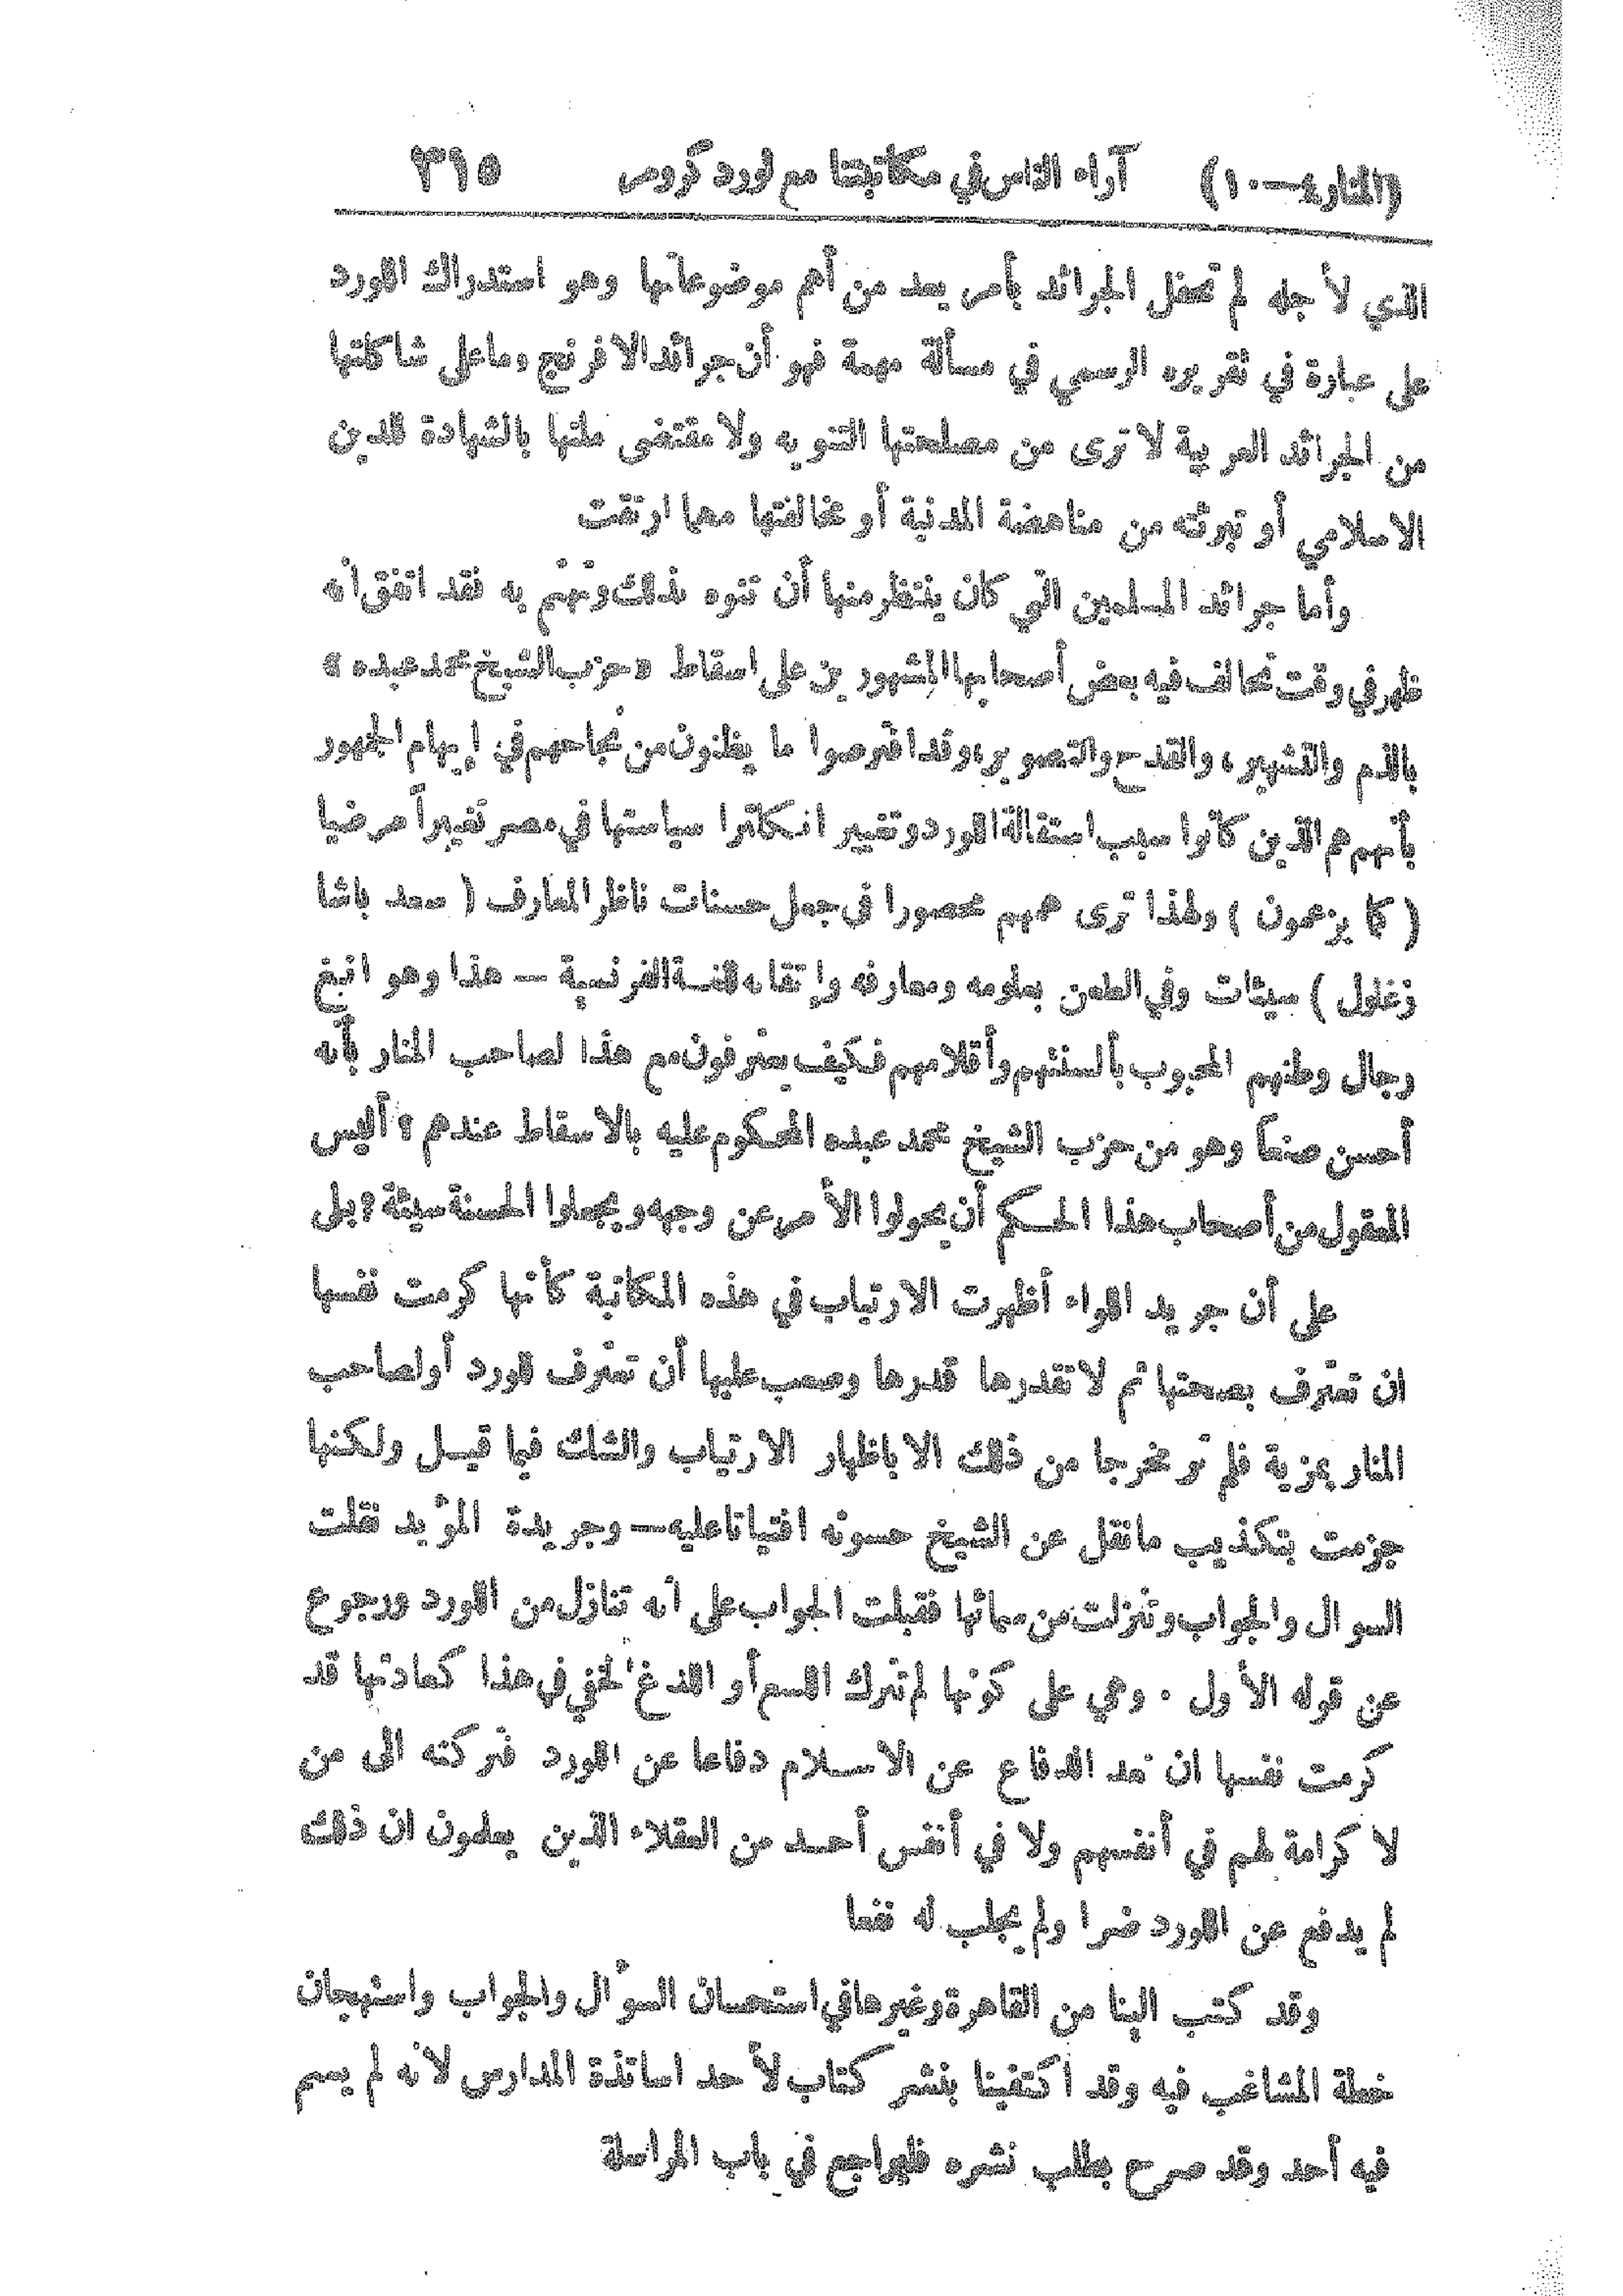 (المنار ٤ـــ ١٠) آراء الناس في مكاتبتنا مع لورد كرومر ٣١٥
الذي لأجله لم تحفل الجرائد بأمر يعد من أهم موضوعاتها وهو استدراك اللورد
على عبارة في تقريره الرسمي في مسألة مهمة فهو أن جرائد الافرنج وما على شاكلتها
من الجرائد العربية لا ترى من مصلحتها التنويه ولا مقتضى ملتها بالشهادة للدين
الاسلامي أو تبرئته من مناهضة المدنية أو مخالفتها مهما ارتقت
وأما جرائد المسلمين التي كان ينتظر منها أن تنوه بذلك وتهتم به فقد اتفق أنه
ظهر في وقت تحالف فيه بعض أصحابها المشهورين على اسقاط « حزب الشيخ محمد عبده »
بالذم والتشهير، والقدح والتصوير، وقد افترصوا ما يظنون من نجاحهم في إيهام الجمهور
بأنهم هم الذين كانوا سبب استقالة اللورد وتغيير انكلترا سياستها في مصر تغييراً مرضيا
( كما يزعمون ) ولهذا ترى همهم محصورا في جعل حسنات ناظر المعارف ( سعد باشا
زغلول ) سيئات وفي الطعن بعلومه ومعارفه وإتقانه للغة الفرنسية — هذا وهو انبغ
رجال وطنهم المحبوب بألسنتهم وأقلامهم فكيف يعترفون مع هذا لصاحب المنار بأنه
أحسن صنعاً وهو من حزب الشيخ محمد عبده المحكوم عليه بالاسقاط عندهم ؟ أليس
المعقول من أصحاب هذا الحكم أن يحولوا الأمر عن وجهه ويجعلوا الحسنة سيئة ؟ بلى
على أن جريد اللواء أظهرت الارتياب في هذه المكاتبة كأنها كرمت نفسها
ان تعترف بصحتها ثم لا تقدرها قدرها وصعب عليها أن تعترف للورد أو لصاحب
المنار بمزية فلم تر مخرجا من ذلك الا باظهار الارتياب والشك فيما قيل ولكنها
جزمت بتكذيب ما نقل عن الشيخ حسونه افتياتا عليه — وجريدة المؤيد نقلت
السوال والجواب وتنزلت من سمائها فقبلت الجواب على أنه تنازل من اللورد ورجوع
عن قوله الأول . وهي على كونها لم تترك اللسع أو اللدغ الخفي في هذا كعادتها قد
كرمت نفسها ان تعد الدفاع عن الاسلام دفاعا عن اللورد فتركته الى من
لا كرامة لهم في أنفسهم ولا في أنفس أحد من العقلاء الذين يعلمون ان ذلك
لم يدفع عن اللورد ضرا ولم يجلب له نفعا
وقد كتب الينا من القاهرة وغيرها في استحسان السؤال والجواب واستهجان
خطة المشاغب فيه وقد اكتفينا بنشر كتاب لأحد اساتذة المدارس لانه لم يسم
فيه أحد وقد صرح بطلب نشره فليراجع في باب المراسلة